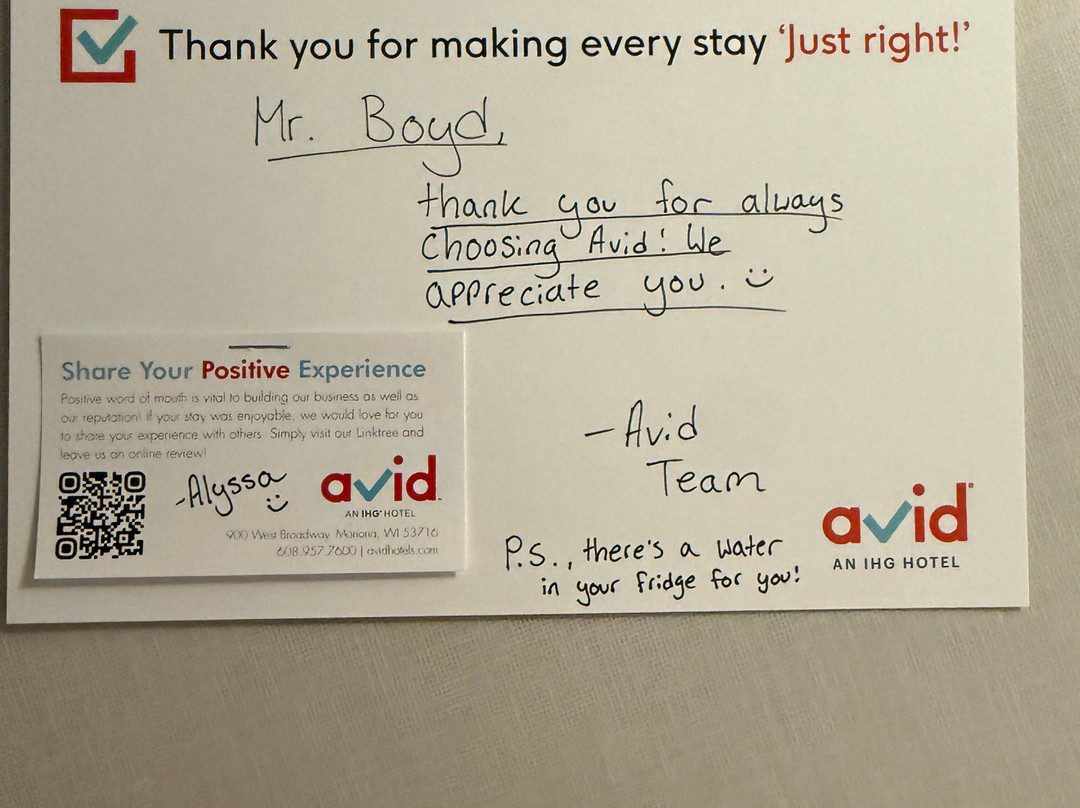 Thank you for making every stay ‘Just right!’
Mr. Boyd,
thank you for always
Choosing Avid! We
appreciate you. :)
Share Your Positive Experience
Positive word of mouth is vital to building our business as well as
our reputation! If your stay was enjoyable, we would love for you
to share your experience with others. Simply visit our Linktree and
leave us an online review!
-Alyssa :)
avid
AN IHG® HOTEL
900 West Broadway, Monona, WI 53716
608.957.7600 | avidhotels.com
- Avid
Team
P.S., there's a water
in your fridge for you!
avid®
AN IHG HOTEL